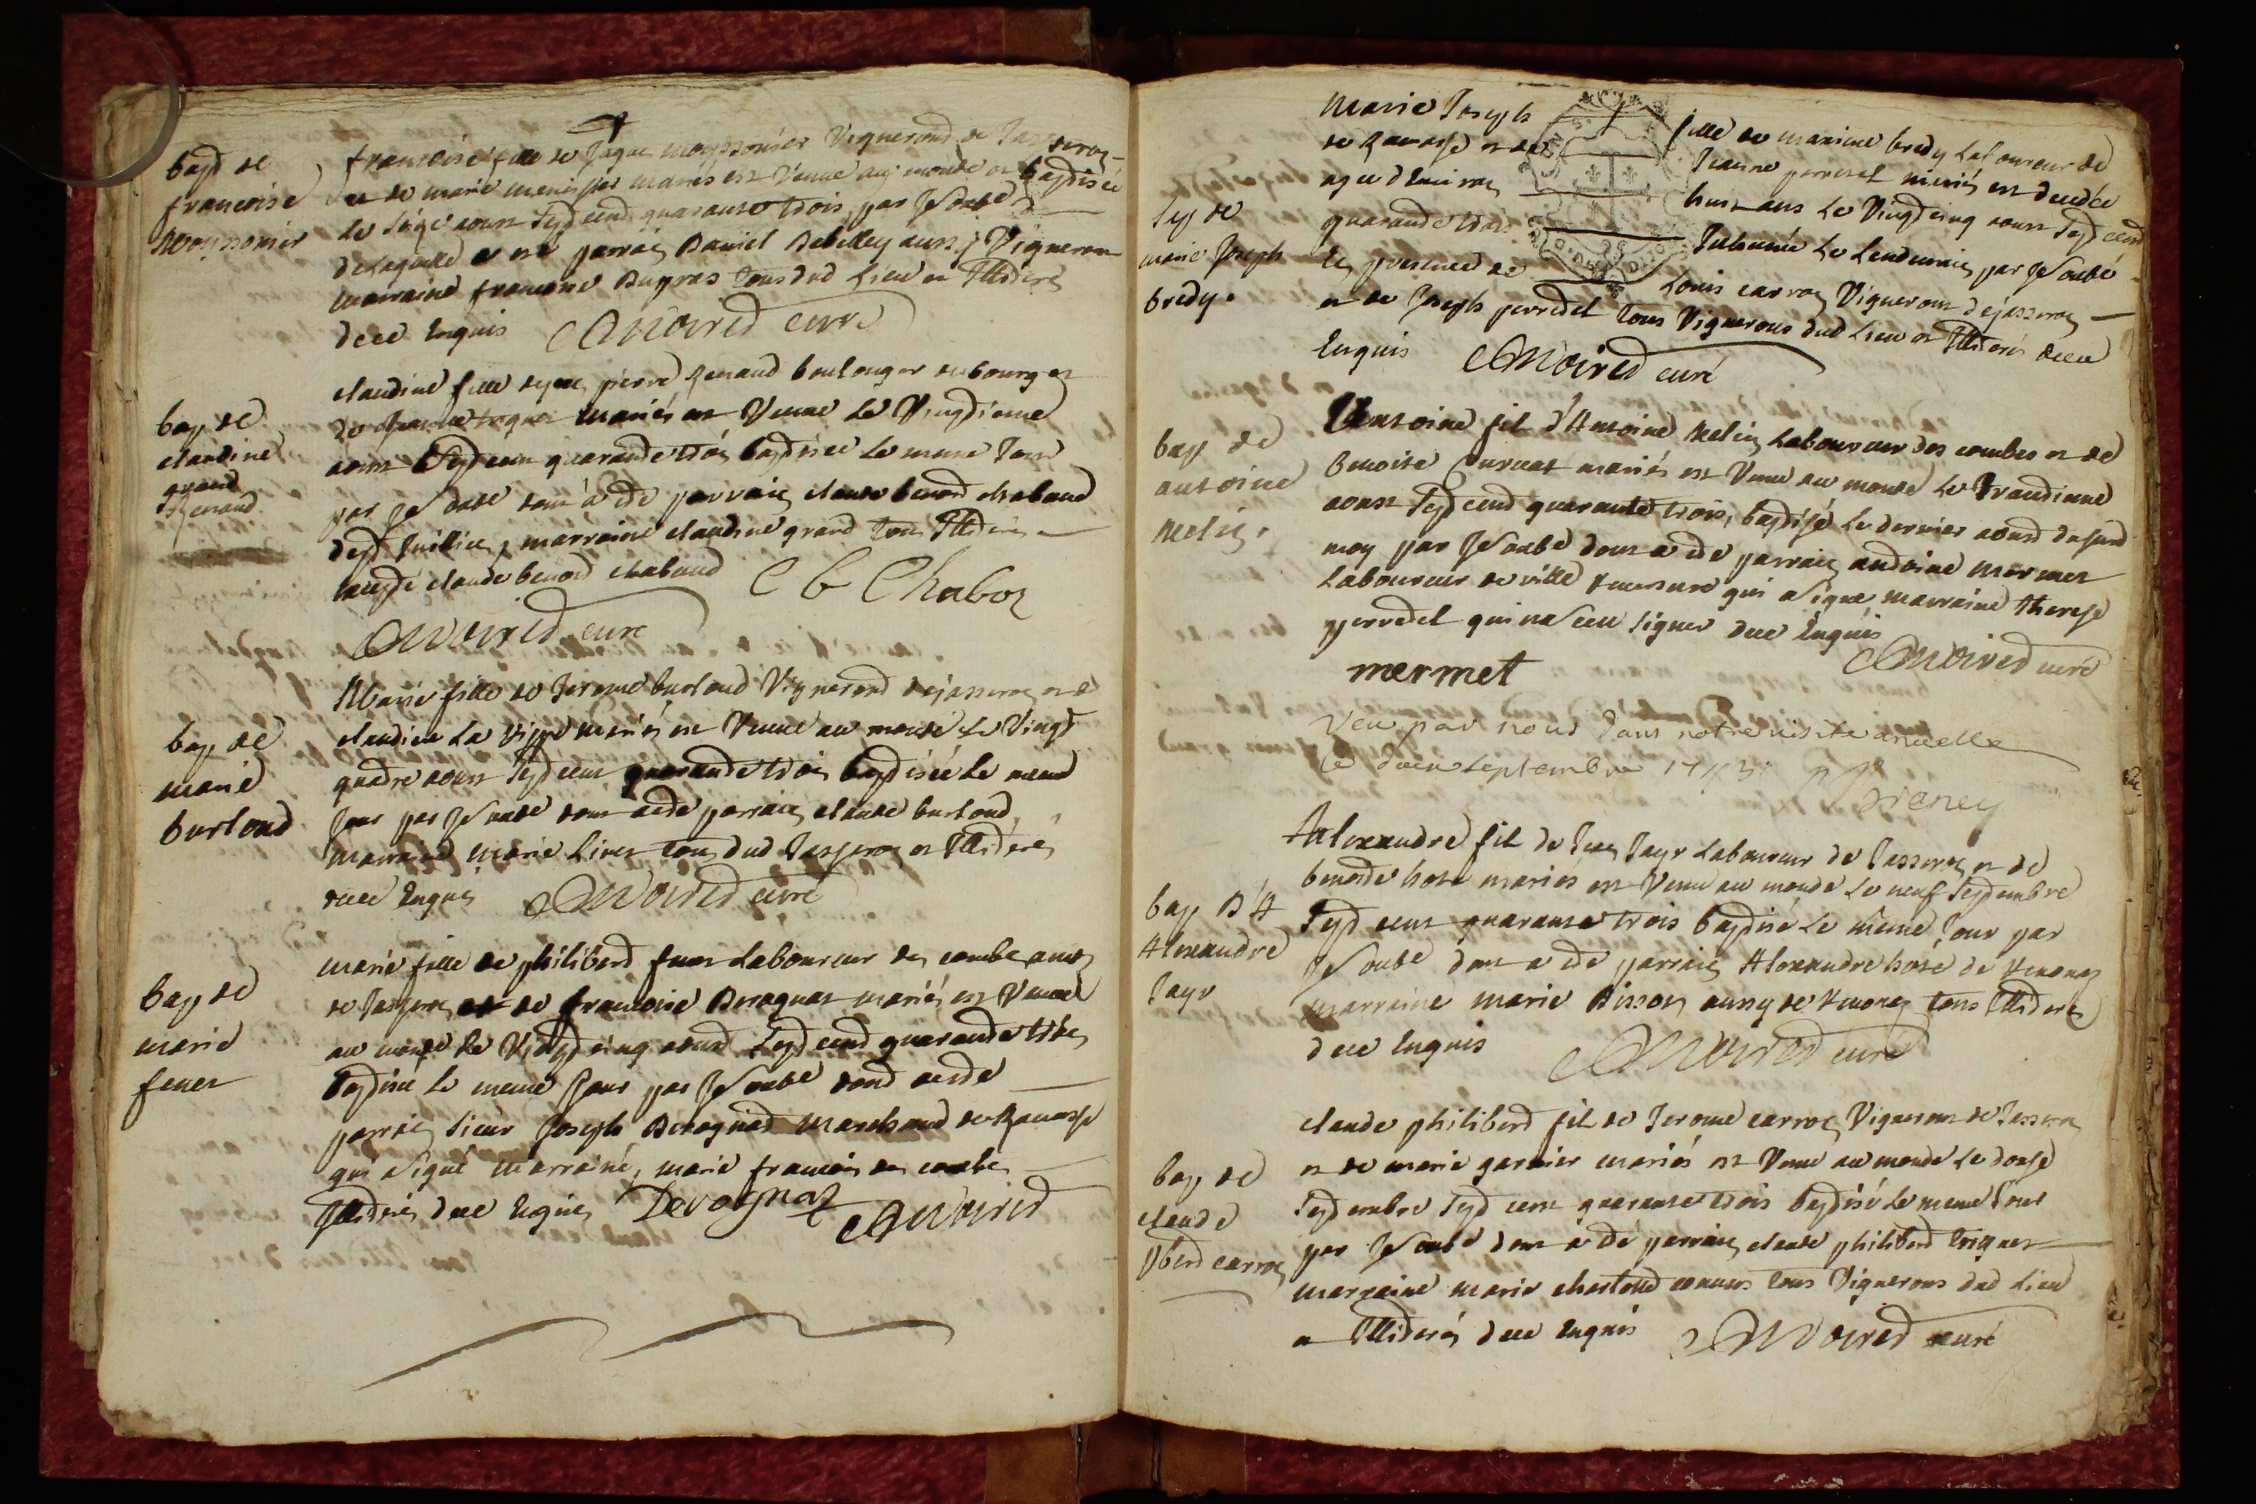 bapt de
francoise
Moyssonier
francoise fille de Jaque moyssonier Vigneron de Jasseron
et de marie mariés est Venue au monde et baptisée
Le aoust sept cent quarante trois par Je soubs
de laquelle a eté parrain Daniel Debelley aussy Vigneron
marraine francoise Dupras tous dud Lieu et Illiterés
dece Enquis Moiret curé
bap de
claudine
grand
Renaud
claudine fille de pierre Renaud boulanger du bourg et
de mariés est Venue Le Vingtieme
aoust Sept cent quarante trois baptisée Le meme Jour
par Je soubs dont a eté parrain claude benoit chabaud
marraine claudine grand tous Illiterés
claude benoit chabaud C b Chabot
Moiret curé
bap de
marie
burtoud
Marie fille de Jerome burtoud Vigneron de jasseron et de
claudine La mariés est Venue au monde Le Vingt
quatre aoust Sept cent quarante trois baptisée Le meme
Jour par Je soubs dont a eté parrain claude burtoud
marraine marie Livet tous dud Jasseron et Illiterés
dece Enquis Moiret curé
bap de
marie
feuet
marie fille de philibert feuet Laboureur des combes
de Jasseron et de francoise Derognat mariés est Venue
au monde Le Vingt cinq aoust Sept cent quarante trois
baptisée Le meme Jour par Je soubs dont a eté
parrain Sieur Joseph Derognat marchand de Ramasse
qui a signé marraine, marie francois des combes
Illiterés dece Enquis Derognat Moiret
Sep de
marie Joseph
bredy.
Marie Joseph fille de bredy Laboureur de
de Ramasse et de Jeanne perretel mariés est decedée
agée d'Environ huit ans Le Vingt cinq aoust Sept cent
quarante trois Inhumée Le Lendemain par Je soubs
En presence de Louis carron Vigneron de jasseron
et de Joseph perretel tous Vignerons dud Lieu et Illiterés dece
Enquis Moiret curé
bap de
antoine
Melin.
Antoine fil d'Antoine Melin Laboureur des combes et de
benoite mariés est Venu au monde Le trentieme
aoust Sept cent quarante trois, baptisé Le dernier aoust
moy par Je soubs dont a eté parrain antoine mermet
Laboureur de ville qui a signé marraine therese
perretel qui na Sceu Signer dece Enquis
mermet Moiret curé
Veu par nous dans notre visite anuelle
Ce Septembre 1743
bap D'A
Alexandre
Jayr
Alexandre fil de Jean Jayr Laboureur de Jasseron et de
benoite hote mariés est Venu au monde Le neuf Septembre
Sept cent quarante trois baptisé Le meme Jour par
Je soubs dont a eté parrain Alexandre hote de
marraine marie Bisson aussy de tous Illiterés
dece Enquis Moiret curé
bap de
claude
pbert carron
claude philibert fil de Jerome carron Vigneron de Jasseron
et de marie garnier mariés est Venu au monde Le douse
Septembre Sept cent quarante trois baptisé Le meme Jour
par Je soubs dont a eté parrain claude philibert
marraine marie charlotte tous Vignerons dud Lieu
et Illiterés dece Enquis Moiret curé